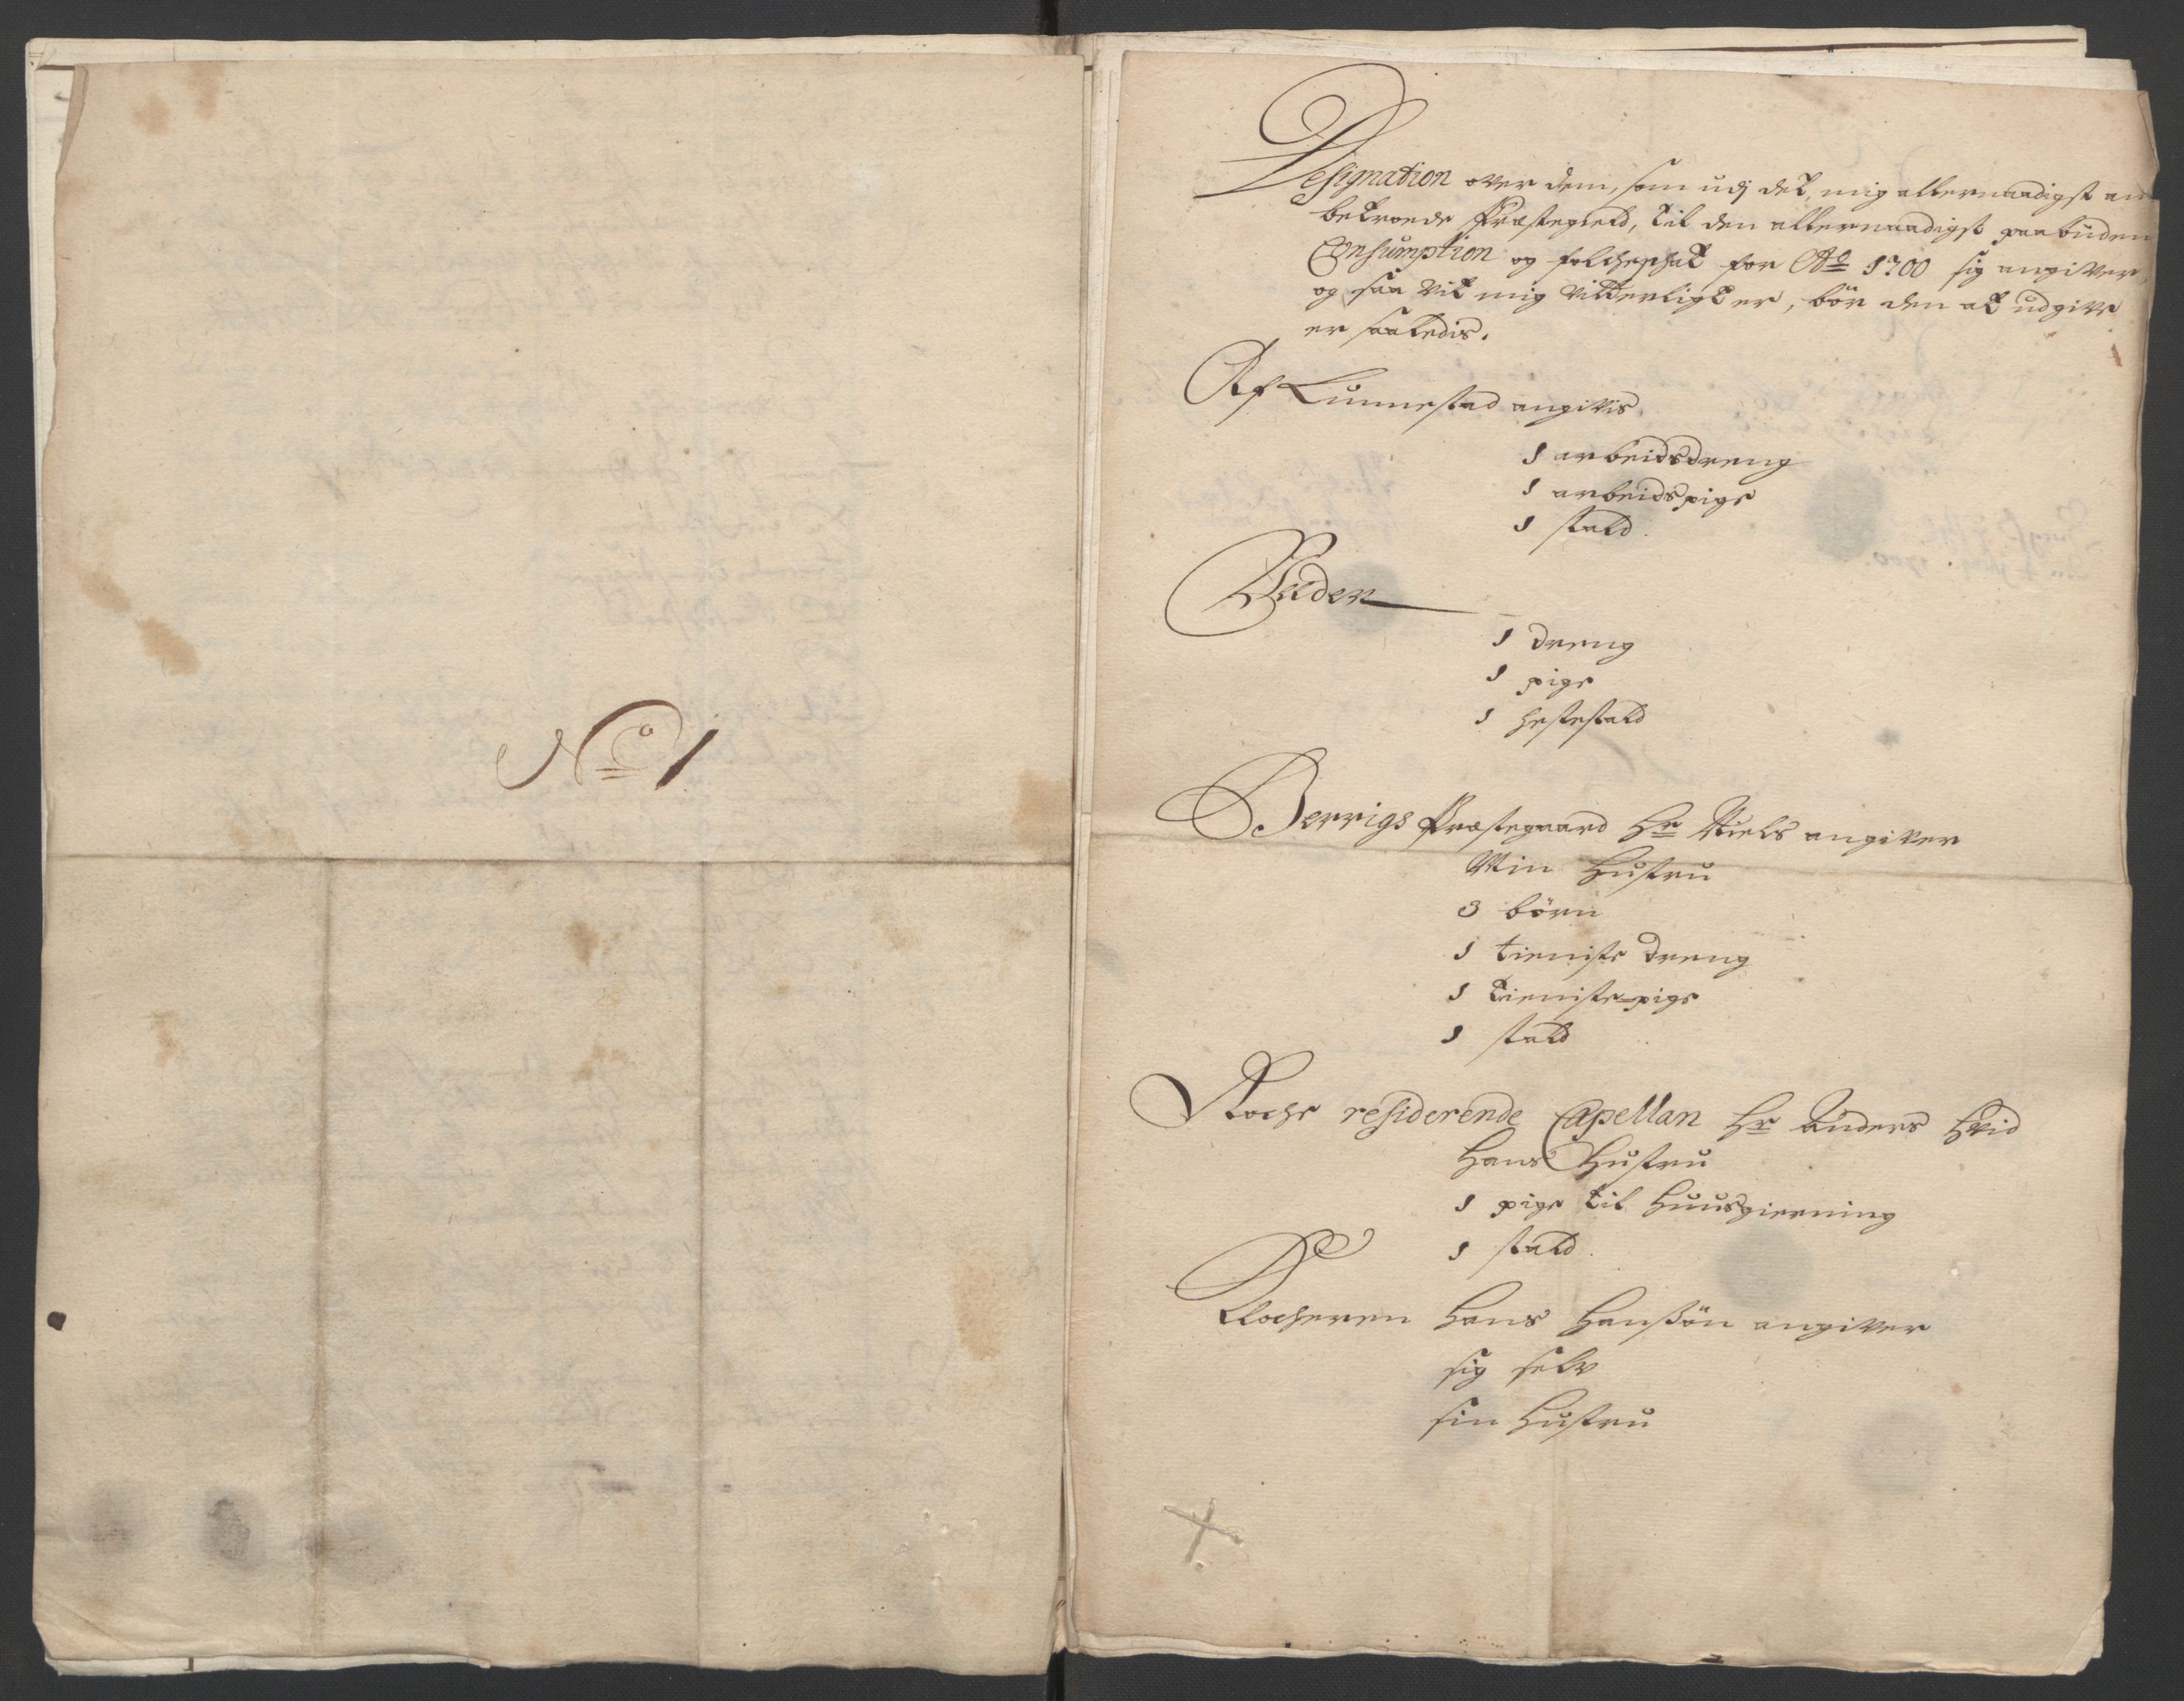 No 1
Designation over dem, som udj det mig allernaadigst an
betroede Præstegield, til den allernaadigst paabuden
Consumption og folcheschat for Ao 1700 sig angiver,
og saa vit mig vitterligt er, bör den at udgive
er saaledis.
Af Lunnestad angivis
1 arbeidsdreng
1 arbeidspige
1 stald.
Buden
1 dreng
1 pige
1 hestestald
Berrigs Præstegaard Hr Niels angiver
Min Hustru
3 börn
1 tieniste dreng
1 tieniste-pige
1 stald
Roche residerende Capellan Hr Anders Hvid
Hans Hustru
1 pige til Huusgierning
1 stald.
Klocheren Hans Hansßön angiver
sig selv
sin Hustru